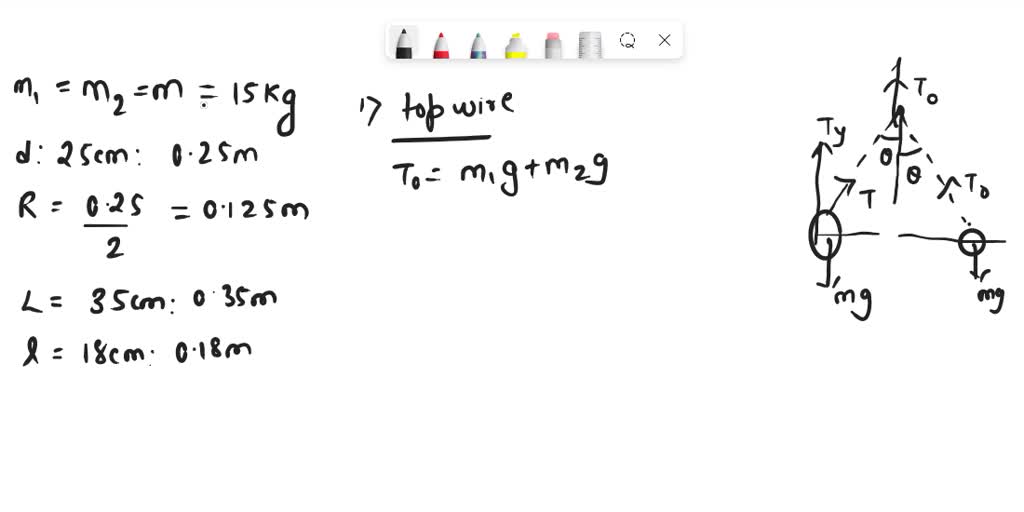 m₁ = m₂ = m = 15 Kg
d: 25cm: 0.25m
R = 0.25/2 = 0.125m
L = 35cm: 0.35m
l = 18cm: 0.18m
1) top wire
T₀ = m₁g + m₂g
T₀
Ty
θ
θ
T
T₀
mg
mg